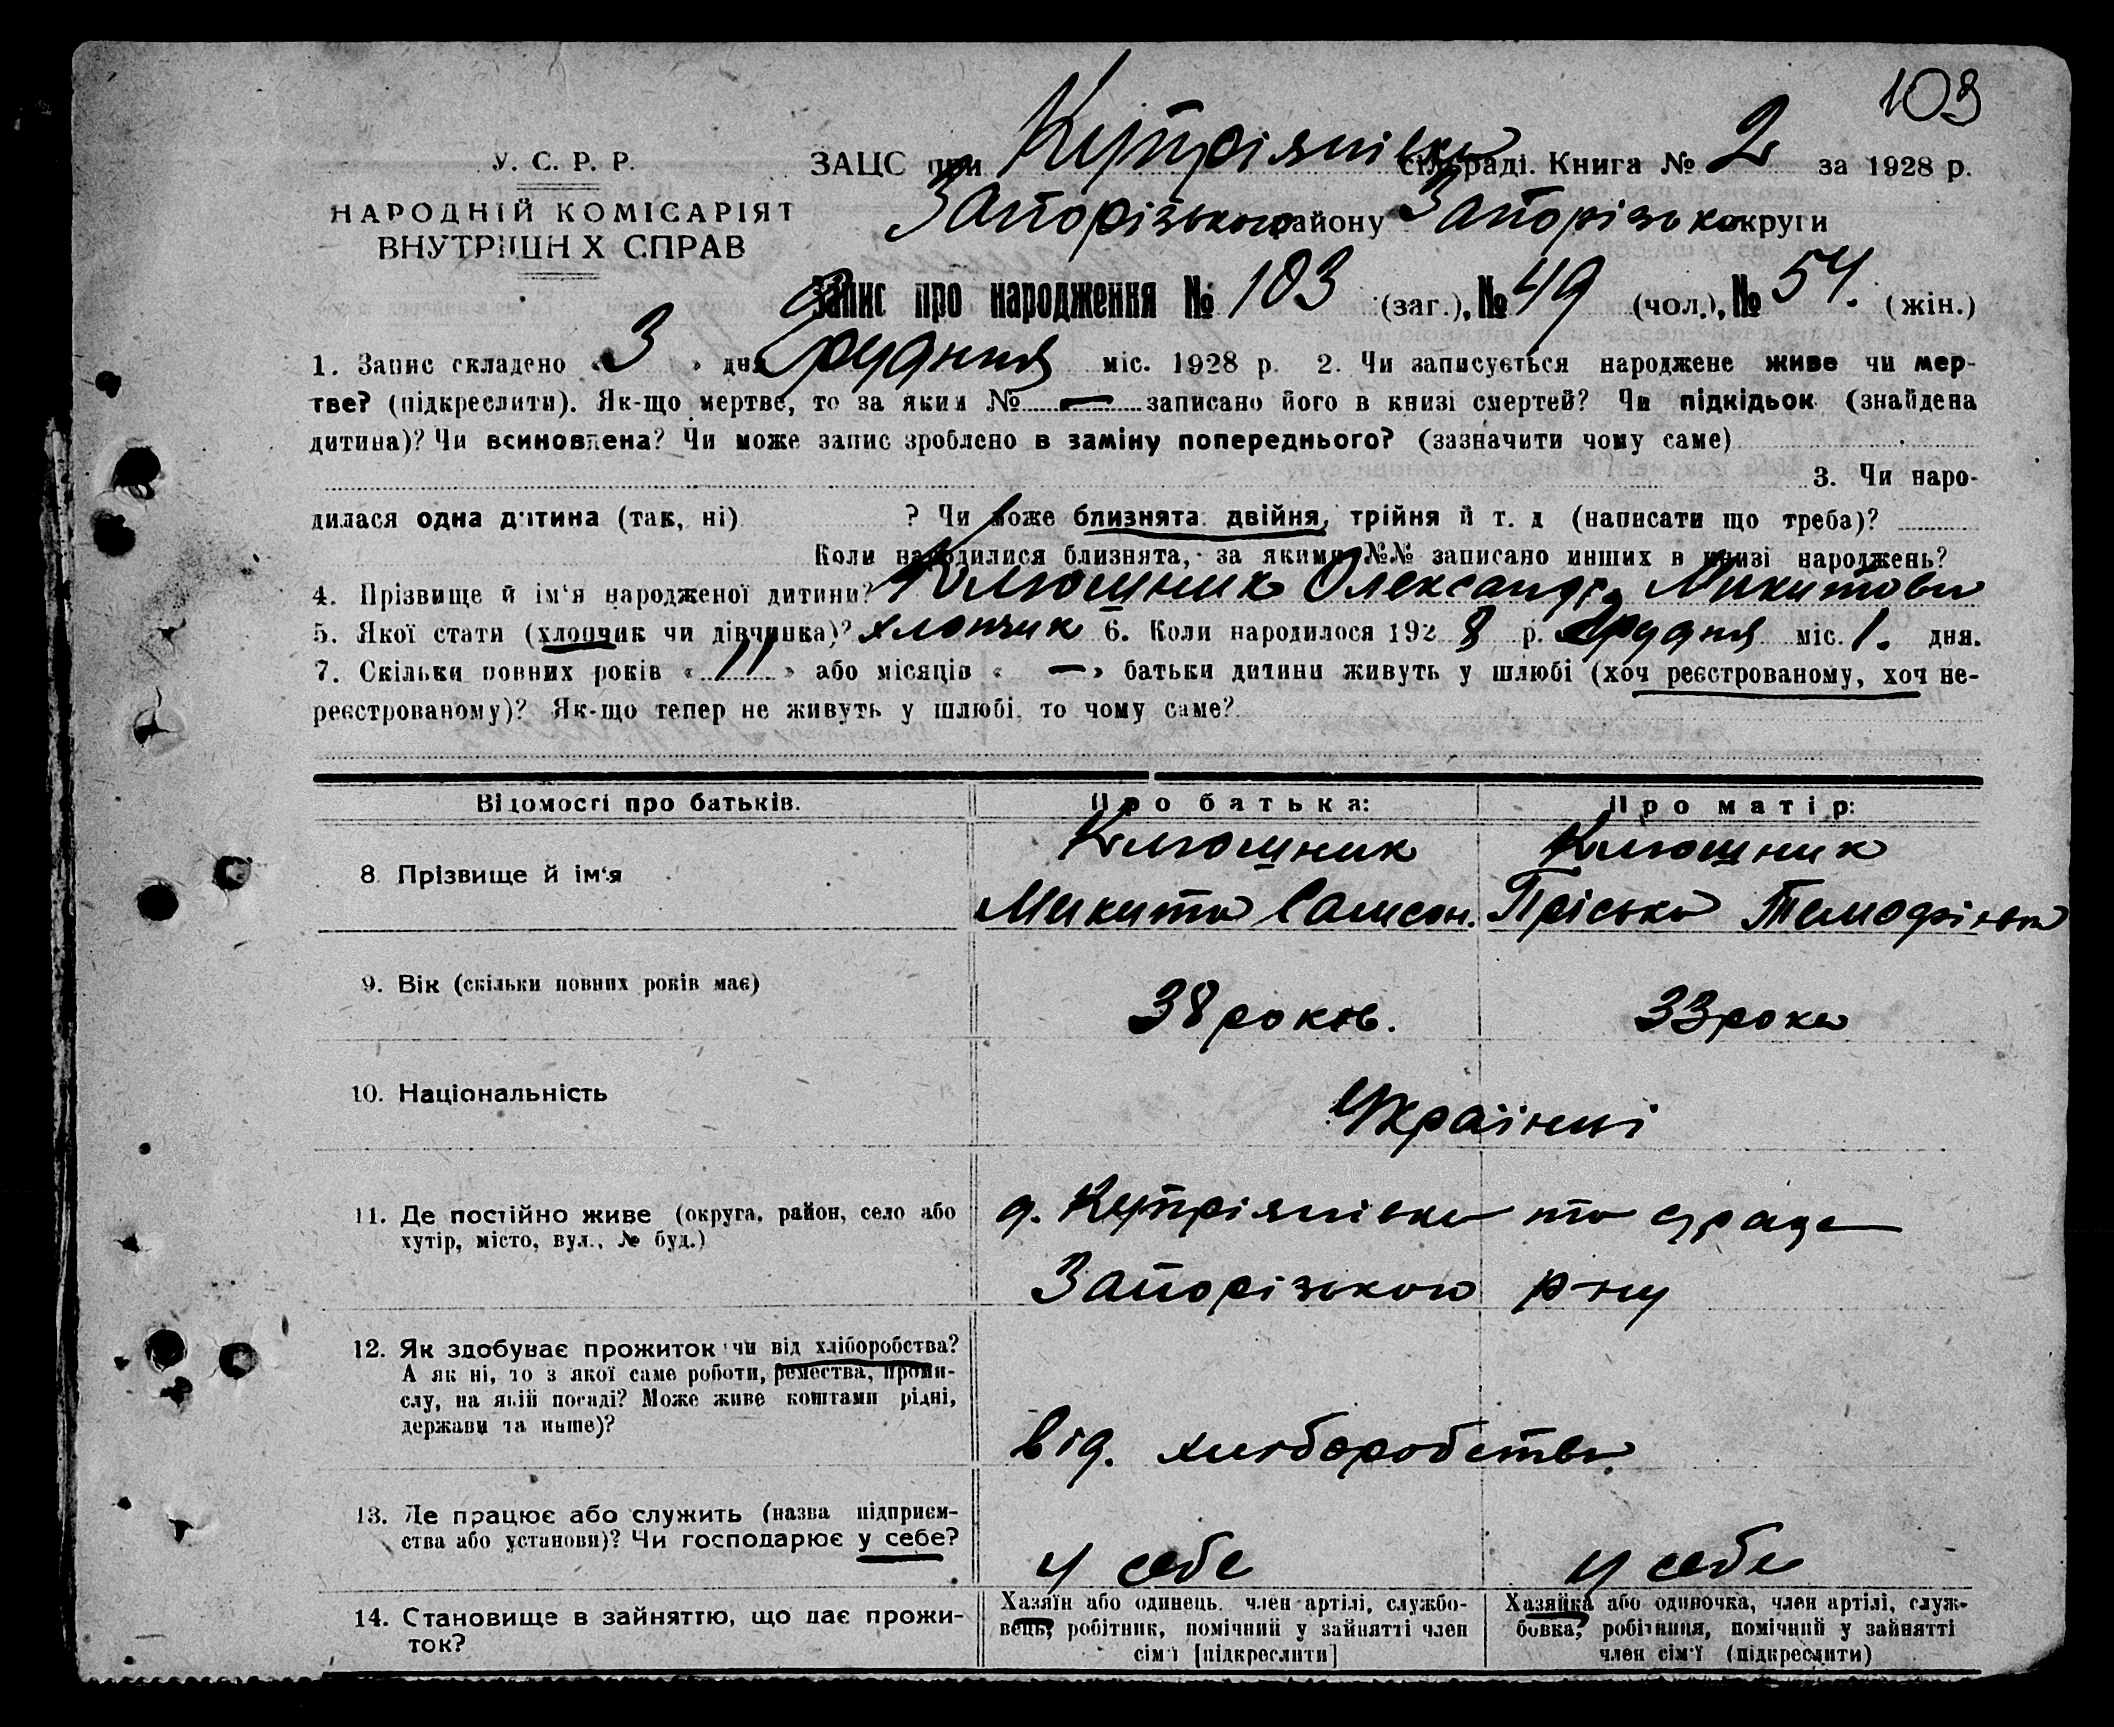 103
У. С. Р. Р.
НАРОДНІЙ КОМІСАРІЯТ
ВНУТРІШНІХ СПРАВ
ЗАЦС при Купріянівки сільраді. Книга № 2 за 1928 р.
Запорізького району Запорізької округи
Запис про народження № 103 (заг.), № 49 (чол.), № 54. (жін.)
1. Запис складено «3» дня Грудня міс. 1928 р. 2. Чи записується народжене живе чи мер-
тве? (підкреслити). Як-що мертве, то за яким № — записано його в книзі смертей? Чи підкідьок (знайдена
дитина)? Чи всиновлена? Чи може запис зроблено в заміну попереднього? (зазначити чому саме)
3. Чи наро-
дилася одна дитина (так, ні) ? Чи може близнята: двійня, трійня й т. д (написати що треба)?
Коли народилися близнята, за якими №№ записано инших в книзі народжень?
4. Прізвище й ім'я народженої дитини? Клюшник Олександр Микитови
5. Якої стати (хлопчик чи дівчинка)? хлопчик 6. Коли народилося 1928 р. Грудня міс. 1. дня.
7. Скільки повних років «11» або місяців «—» батьки дитини живуть у шлюбі (хоч реєстрованому, хоч не-
реєстрованому)? Як-що тепер не живуть у шлюбі, то чому саме?
Відомості про батьків. Про батька: Про матір:
8. Прізвище й ім'я Клюшник Микита Самсон. Клюшник Пріська Тимофіівна
9. Вік (скільки повних років має) 38 років. 33 роки
10. Національність Українці
11. Де постійно живе (округа, район, село або
хутір, місто, вул., № буд.)
д. Купріянівка
Запорізького р-ну
12. Як здобуває прожиток чи від хліборобства?
А як ні, то з якої саме роботи, ремества, проми-
слу, на якій посаді? Може живе коштами рідні,
держави та инше)?
від. хліборобства
13. Де працює або служить (назва підприєм-
ства або установи)? Чи господарює у себе?
у себе у себе
14. Становище в зайняттю, що дає прожи-
ток?
Хазяїн або одинець, член артілі, службо-
вець, робітник, помічний у зайнятті член
сім'ї [підкреслити]
Хазяйка або одиночка, член артілі, служ-
бовка, робітниця, помічний у зайнятті
член сім'ї (підкреслити)